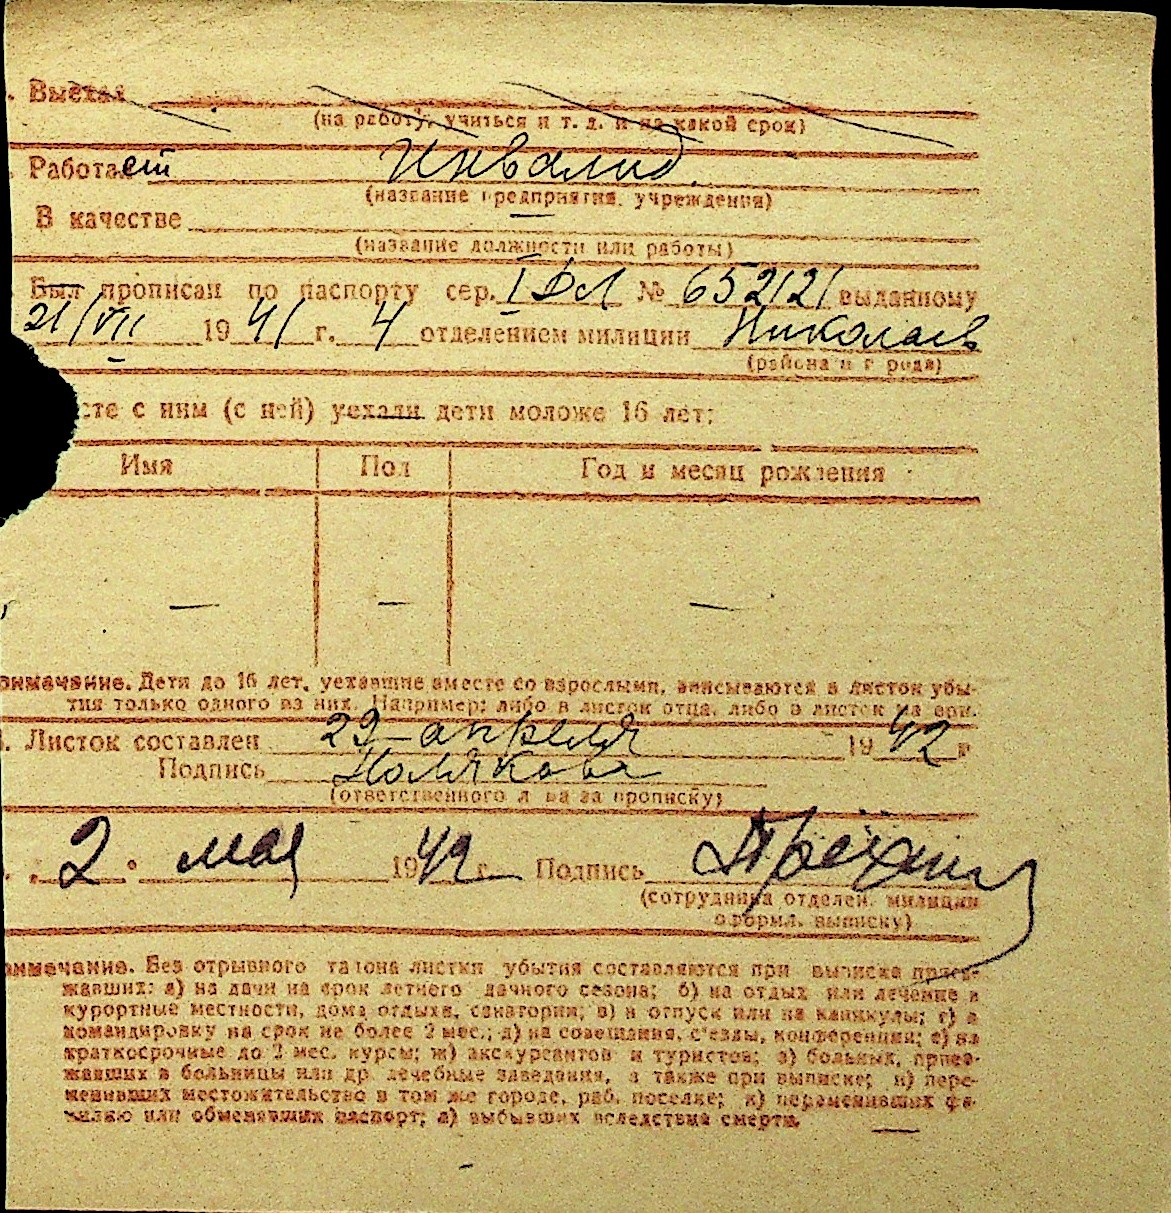 . Выехал
(на работу, учиться и т. д. и на какой срок)
Работает инвалид.
(название предприятия, учреждения)
В качестве
(название должности или работы)
Был прописан по паспорту сер. I ДЛ № 652121 выданному
21/VII 1941 г. 4 отделением милиции Николаев
(района и города)
сте с ним (с ней) уехали дети моложе 16 лет:
Имя Пол Год и месяц рождения
— — —
имечание. Дети до 16 лет, уехавшие вместе со взрослыми, вписываются в листок убы-
тия только одного из них. Например: либо в листок отца, либо в листок
. Листок составлен 29 апреля 1942 г
Подпись Полякова
(ответственного л ца за прописку)
. „2" мая 1942 г. Подпись
(сотрудника отделен. милиции
оформл. выписку)
имечание. Без отрывного талона листки убытия составляются при выписке приез-
жавших: а) на дачи на срок летнего дачного сезона; б) на отдых или лечение в
курортные местности, дома отдыха, санатории; в) в отпуск или на каникулы; г) в
командировку на срок не более 2 мес.; д) на совещания, с'езды, конференции; е) на
краткосрочные до 2 мес. курсы; ж) экскурсантов и туристов; з) больных, приез-
жавших в больницы или др. лечебные заведения, а также при выписке; и) пере-
менивших местожительство в том же городе, раб. поселке; к) переменивших фа-
милию или обменявших паспорт; л) выбывших вследствие смерти.